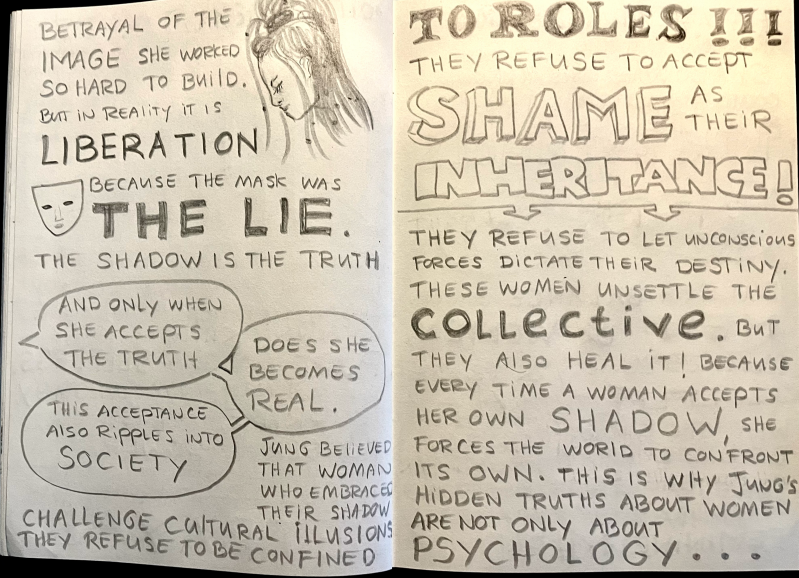 BETRAYAL OF THE
IMAGE SHE WORKED
SO HARD TO BUILD.
BUT IN REALITY IT IS
LIBERATION
BECAUSE THE MASK WAS
THE LIE.
THE SHADOW IS THE TRUTH
AND ONLY WHEN
SHE ACCEPTS
THE TRUTH
DOES SHE
BECOMES
REAL.
THIS ACCEPTANCE
ALSO RIPPLES INTO
SOCIETY
JUNG BELIEVED
THAT WOMAN
WHO EMBRACED
THEIR SHADOW
CHALLENGE CULTURAL ILLUSIONS
THEY REFUSE TO BE CONFINED
TO ROLES !!!
THEY REFUSE TO ACCEPT
SHAME AS
THEIR
INHERITANCE!
THEY REFUSE TO LET UNCONSCIOUS
FORCES DICTATE THEIR DESTINY.
THESE WOMEN UNSETTLE THE
COLLECTIVE. BUT
THEY ALSO HEAL IT! BECAUSE
EVERY TIME A WOMAN ACCEPTS
HER OWN SHADOW, SHE
FORCES THE WORLD TO CONFRONT
ITS OWN. THIS IS WHY JUNG'S
HIDDEN TRUTHS ABOUT WOMEN
ARE NOT ONLY ABOUT
PSYCHOLOGY...